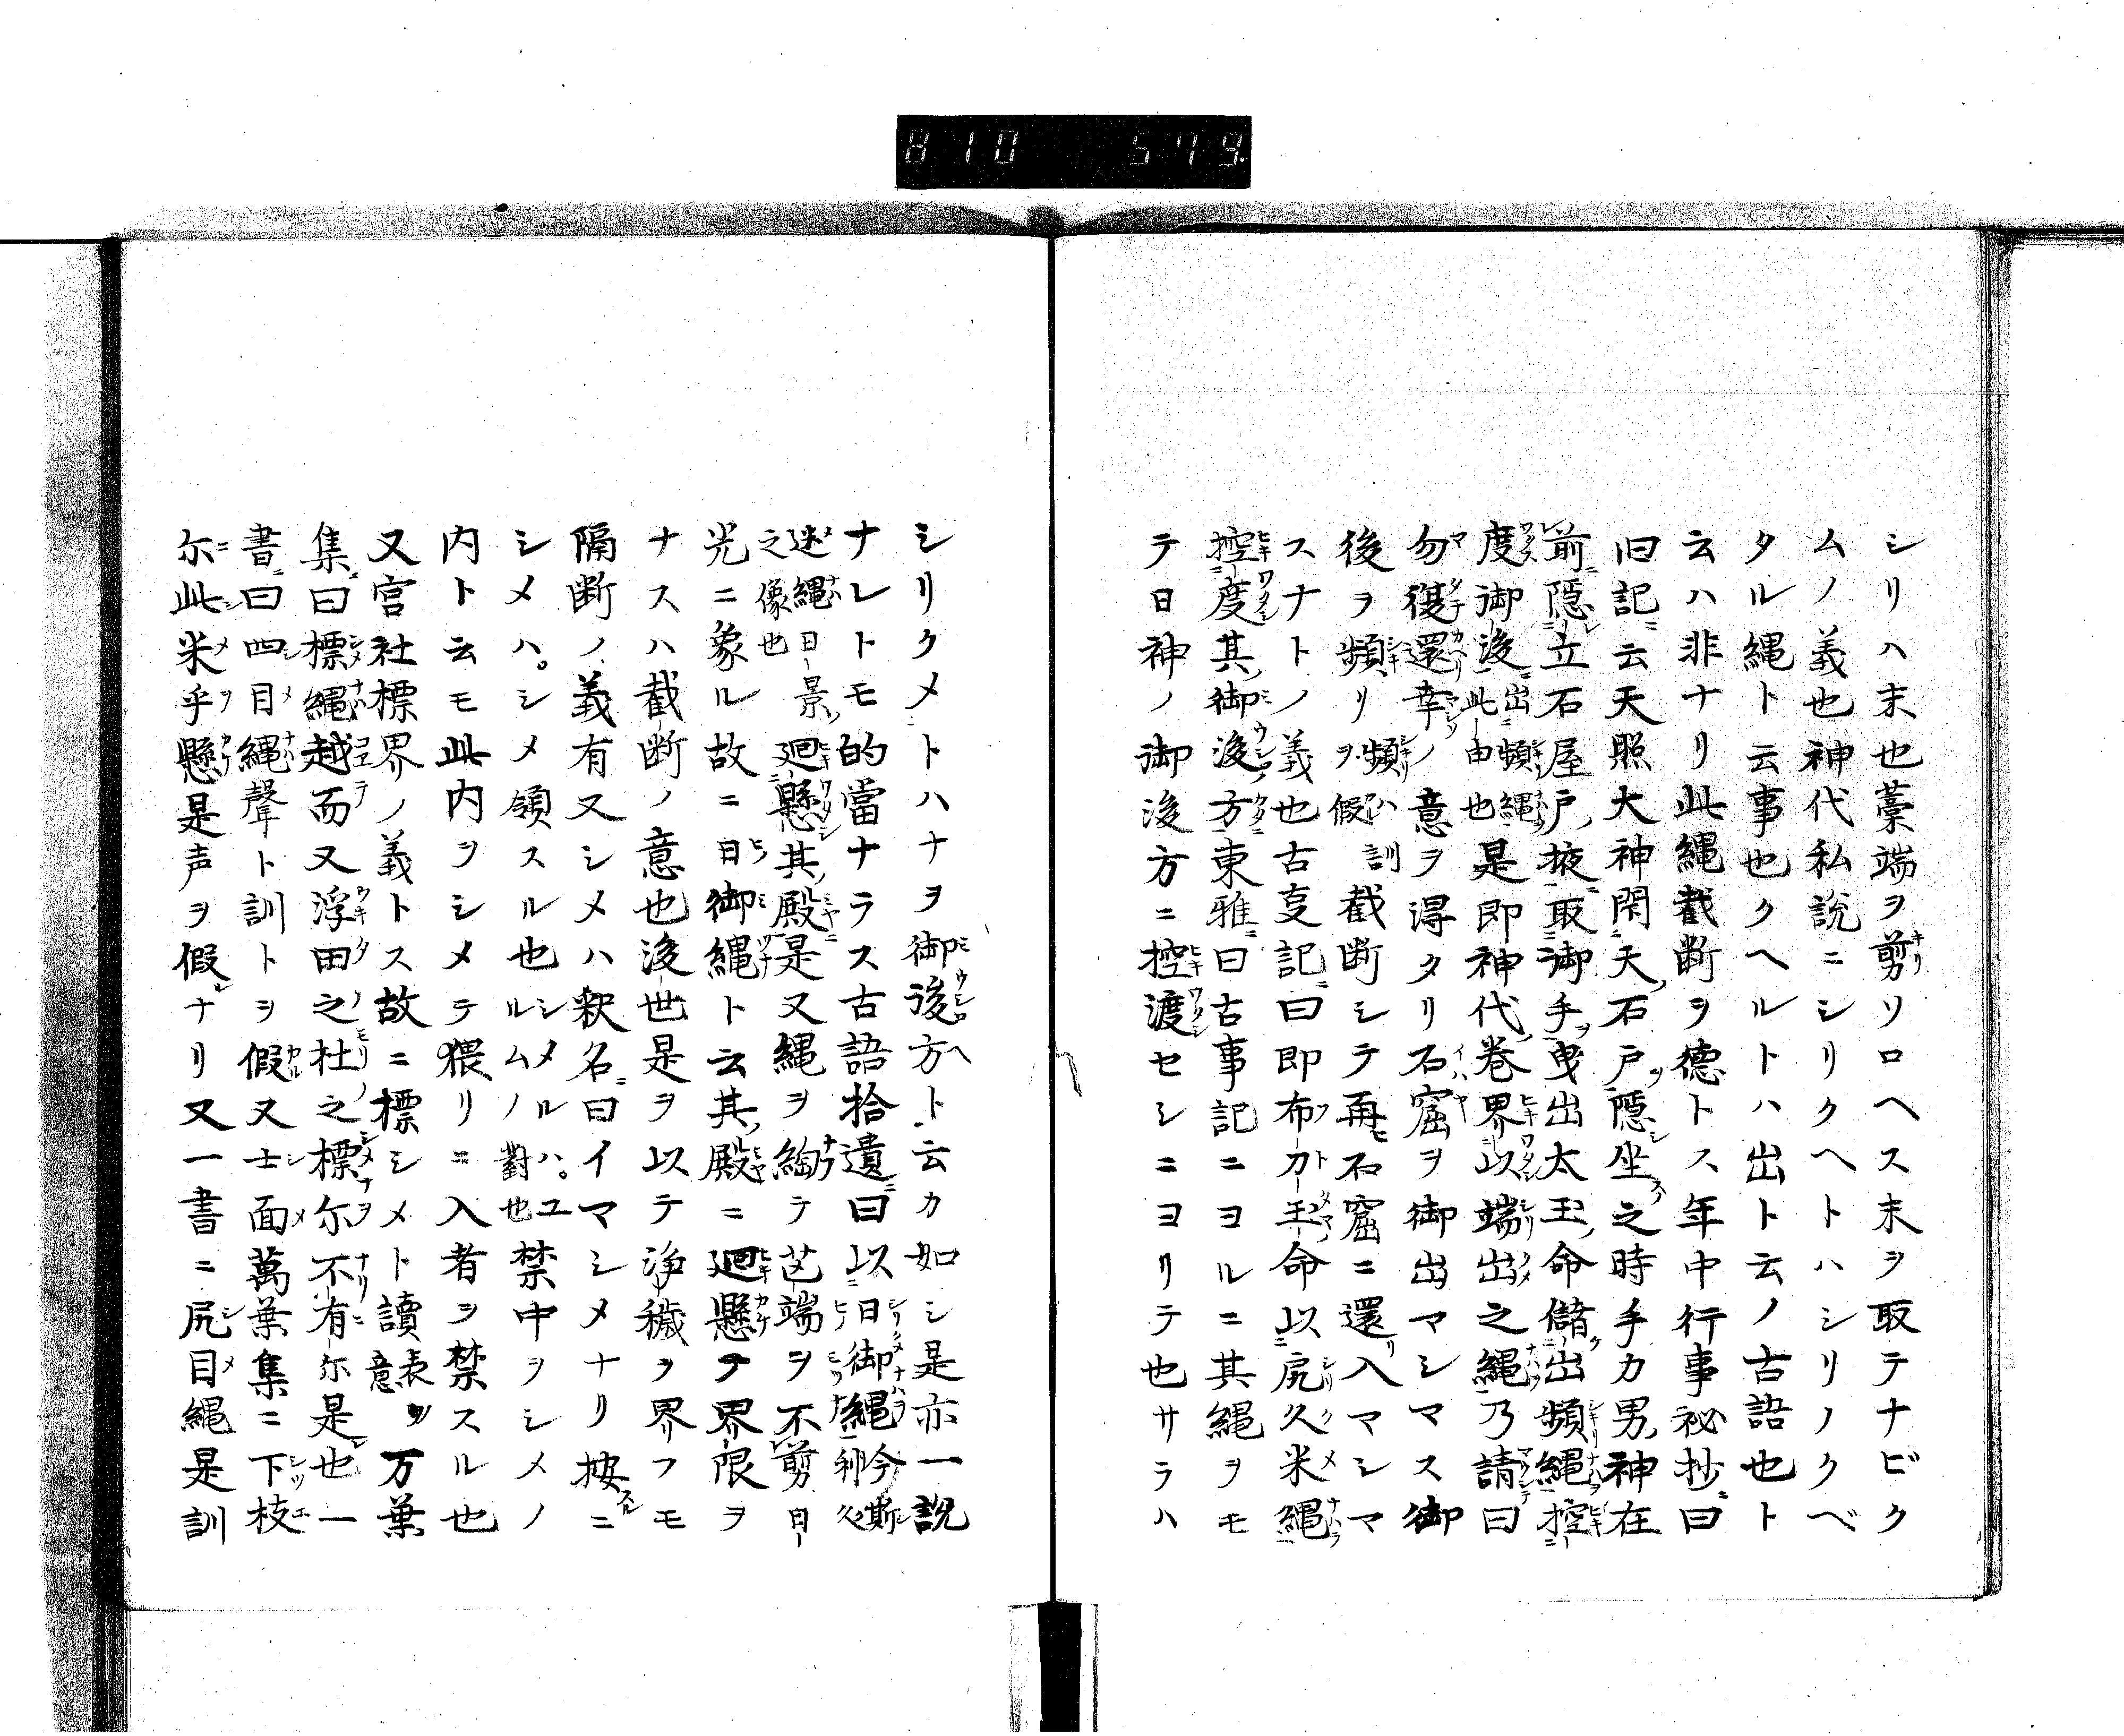 810 579
シリハ末也藁端ヲ剪ソロヘス末ヲ取テナビク
ムノ義也神代私説ニシリクヘトハシリノクベ
タル縄ト云事也クヘルトハ出ト云ノ古語也ト
云ハ非ナリ此縄截断ヲ徳トス年中行事秘抄曰
旧記云天照大神閇天石戸隠坐之時手力男神在
前隠立石屋戸掖取御手曳出太玉命儲出頻縄控
度御後出頻縄此由也是即神代巻界以端出之縄乃請曰
勿復還幸ノ意ヲ得タリ石窟ヲ御出マシマス御
後ヲ頻リヲ頻假訓截断シテ再石窟ニ還入マシマ
スナトノ義也古叓記曰即布刀玉命以尻久米縄
控度其御後方東雅曰古事記ニヨルニ其縄ヲモ
テ日神ノ御後方ニ控渡セシニヨリテ也サラハ
シリクメトハナヲ御後方ト云カ如シ是亦一説
ナレトモ的當ナラス古語拾遺曰以日御縄今斯利久
迷縄日景之像也廻懸其殿是又縄ヲ綯テ芑端ヲ不剪日
光ニ象ル故ニ日御縄ト云其殿ニ廻懸テ界限ヲ
ナスハ截断ノ意也後世是ヲ以テ浄穢ヲ界フモ
隔断ノ義有又シメハ釈名曰イマシメナリ按ニ
シメハシメ領スル也シメルハユルムノ對也禁中ヲシメノ
内ト云モ此内ヲシメテ猥リニ入者ヲ禁スル也
又宮社標界ノ義トス故ニ標シメト讀表意万葉
集曰標縄越而又浮田之杜之標尓不有尓是也一
書曰四目縄聲ト訓トヲ假又士面萬葉集ニ下枝
尓此米乎懸是声ヲ假ナリ又一書ニ尻目縄是訓